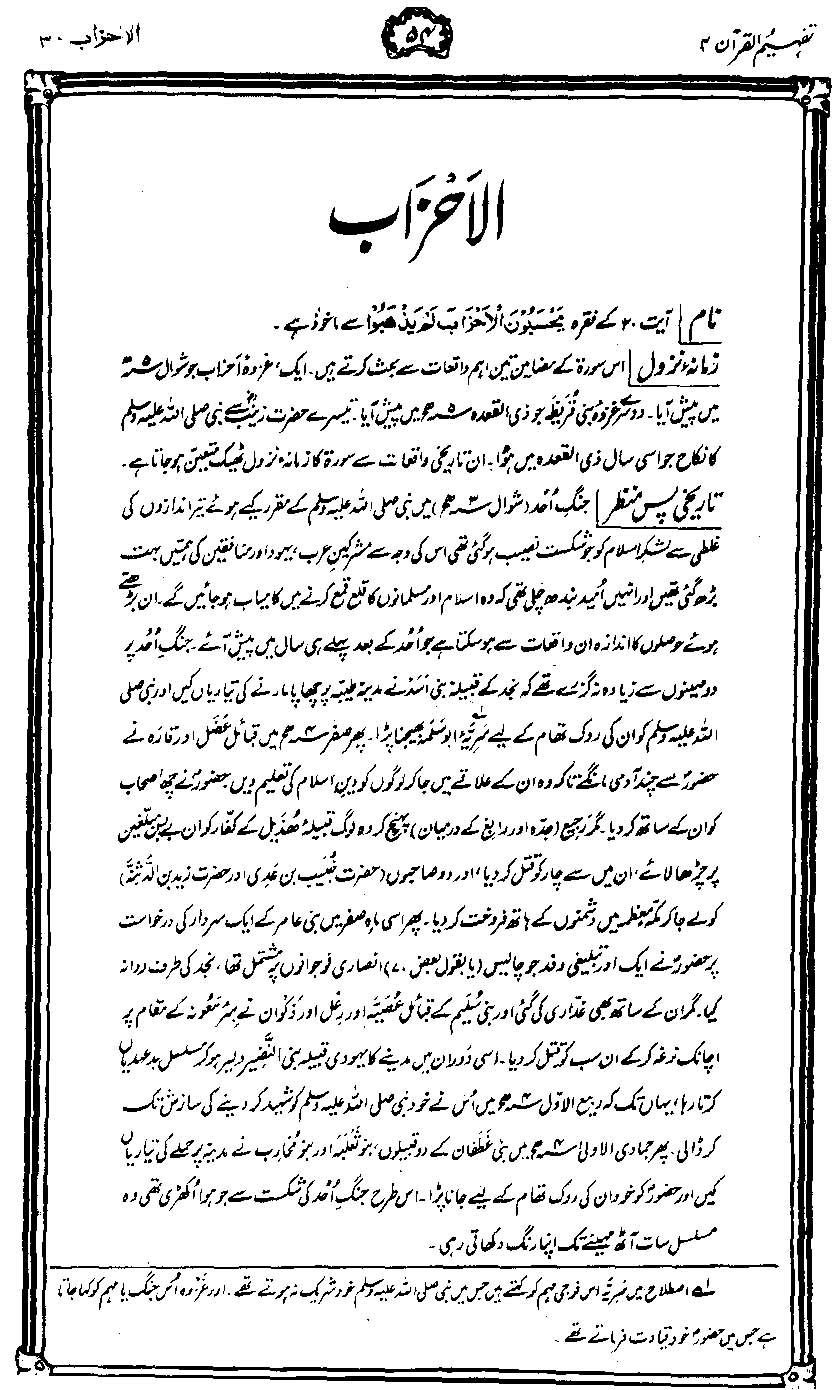 تفہیم القرآن ۴
۵۴
الاحزاب ۳۰
الاَحْزَاب
نام | آیت ۲۰ کے فقرہ یَحْسَبُوْنَ الْاَحْزَابَ لَمْ یَذْهَبُوْا سے ماخوذ ہے۔
زمانۂ نزول | اس سورۃ کے مضامین تین اہم واقعات سے بحث کرتے ہیں۔ ایک، غزوۂ احزاب جو شوال ۵ھ
میں پیش آیا۔ دوسرے غزوۂ بنی قُرَیظہ جو ذی القعدہ ۵ھ میں پیش آیا۔ تیسرے حضرت زینبؓ سے نبی صلی اللہ علیہ وسلم
کا نکاح جو اسی سال ذی القعدہ میں ہُوا۔ ان تاریخی واقعات سے سورۃ کا زمانۂ نزول ٹھیک متعین ہو جاتا ہے۔
تاریخی پس منظر | جنگِ اُحد (شوال ۳ھ) میں نبی صلی اللہ علیہ وسلم کے مقرر کیے ہوئے تیر اندازوں کی
غلطی سے لشکرِ اسلام کو جو شکست نصیب ہو گئی تھی اس کی وجہ سے مشرکینِ عرب، یہود اور منافقین کی ہمتیں بہت
بڑھ گئی تھیں اور انہیں اُمید بندھ چلی تھی کہ وہ اسلام اور مسلمانوں کا قلع قمع کرنے میں کامیاب ہو جائیں گے۔ ان بڑھتے
ہوئے حوصلوں کا اندازہ ان واقعات سے ہو سکتا ہے جو اُحُد کے بعد پہلے ہی سال میں پیش آئے۔ جنگِ اُحُد پر
دو مہینوں سے زیادہ نہ گزرے تھے کہ نجد کے قبیلۂ بنی اَسَد نے مدینۂ طیبہ پر چھاپا مارنے کی تیاریاں کیں اور نبی صلی
اللہ علیہ وسلم کو ان کی روک تھام کے لیے سَرِیَّۂ ابو سَلَمہ بھیجنا پڑا۔ پھر صفر ۴ھ میں قبائل عَضَل اور قارَہ نے
حضورؐ سے چند آدمی مانگے تاکہ وہ ان کے علاقے میں جا کر لوگوں کو دینِ اسلام کی تعلیم دیں۔ حضورؐ نے چھ اصحاب
کو ان کے ساتھ کر دیا۔ مگر رَجیع (جدّہ اور رابغ کے درمیان) پہنچ کر وہ لوگ قبیلۂ ھُذَیل کے کفار کو ان بے بس مبلغین
پر چڑھا لائے، ان میں سے چار کو قتل کر دیا، اور دو صاحبوں (حضرت خُبَیب بن عَدِی اور حضرت زید بن الدَّثِنَّہ)
کو لے جا کر مکّۂ معظمہ میں دشمنوں کے ہاتھ فروخت کر دیا۔ پھر اسی ماہِ صفر میں بنی عامر کے ایک سردار کی درخواست
پر حضورؐ نے ایک اور تبلیغی وفد جو چالیس (یا بقول بعض ۷۰) انصاری نوجوانوں پر مشتمل تھا، نجد کی طرف روانہ
کیا۔ مگر ان کے ساتھ بھی غداری کی گئی اور بنی سُلَیم کے قبائل عُصَیَّہ اور رِعْل اور ذَکْوان نے بِئرِ مَعُونہ کے مقام پر
اچانک نرغہ کر کے ان سب کو قتل کر دیا۔ اسی دَوران میں مدینے کا یہودی قبیلہ بنی النَّضِیر دلیر ہو کر مسلسل بدعہدیاں
کرتا رہا، یہاں تک کہ ربیع الاوّل ۴ھ میں اُس نے خود نبی صلی اللہ علیہ وسلم کو شہید کر دینے کی سازش تک
کر ڈالی۔ پھر جمادی الاولیٰ ۴ھ میں بنی غَطَفان کے دو قبیلوں، بنو ثَعْلَبَہ اور بنو مُحَارِب نے مدینہ پر حملے کی تیاریاں
کیں اور حضورؐ کو خود ان کی روک تھام کے لیے جانا پڑا۔ اس طرح جنگِ اُحُد کی شکست سے جو ہوا اُکھڑی تھی وہ
مسلسل سات آٹھ مہینے تک اپنا رنگ دکھاتی رہی۔
لہ اصطلاح میں سَرِیَّہ اس فوجی مہم کو کہتے ہیں جس میں نبی صلی اللہ علیہ وسلم خود شریک نہ ہوتے تھے۔ اور غَزوہ اُس جنگ یا مہم کو کہا جاتا
ہے جس میں حضورؐ خود قیادت فرماتے تھے۔